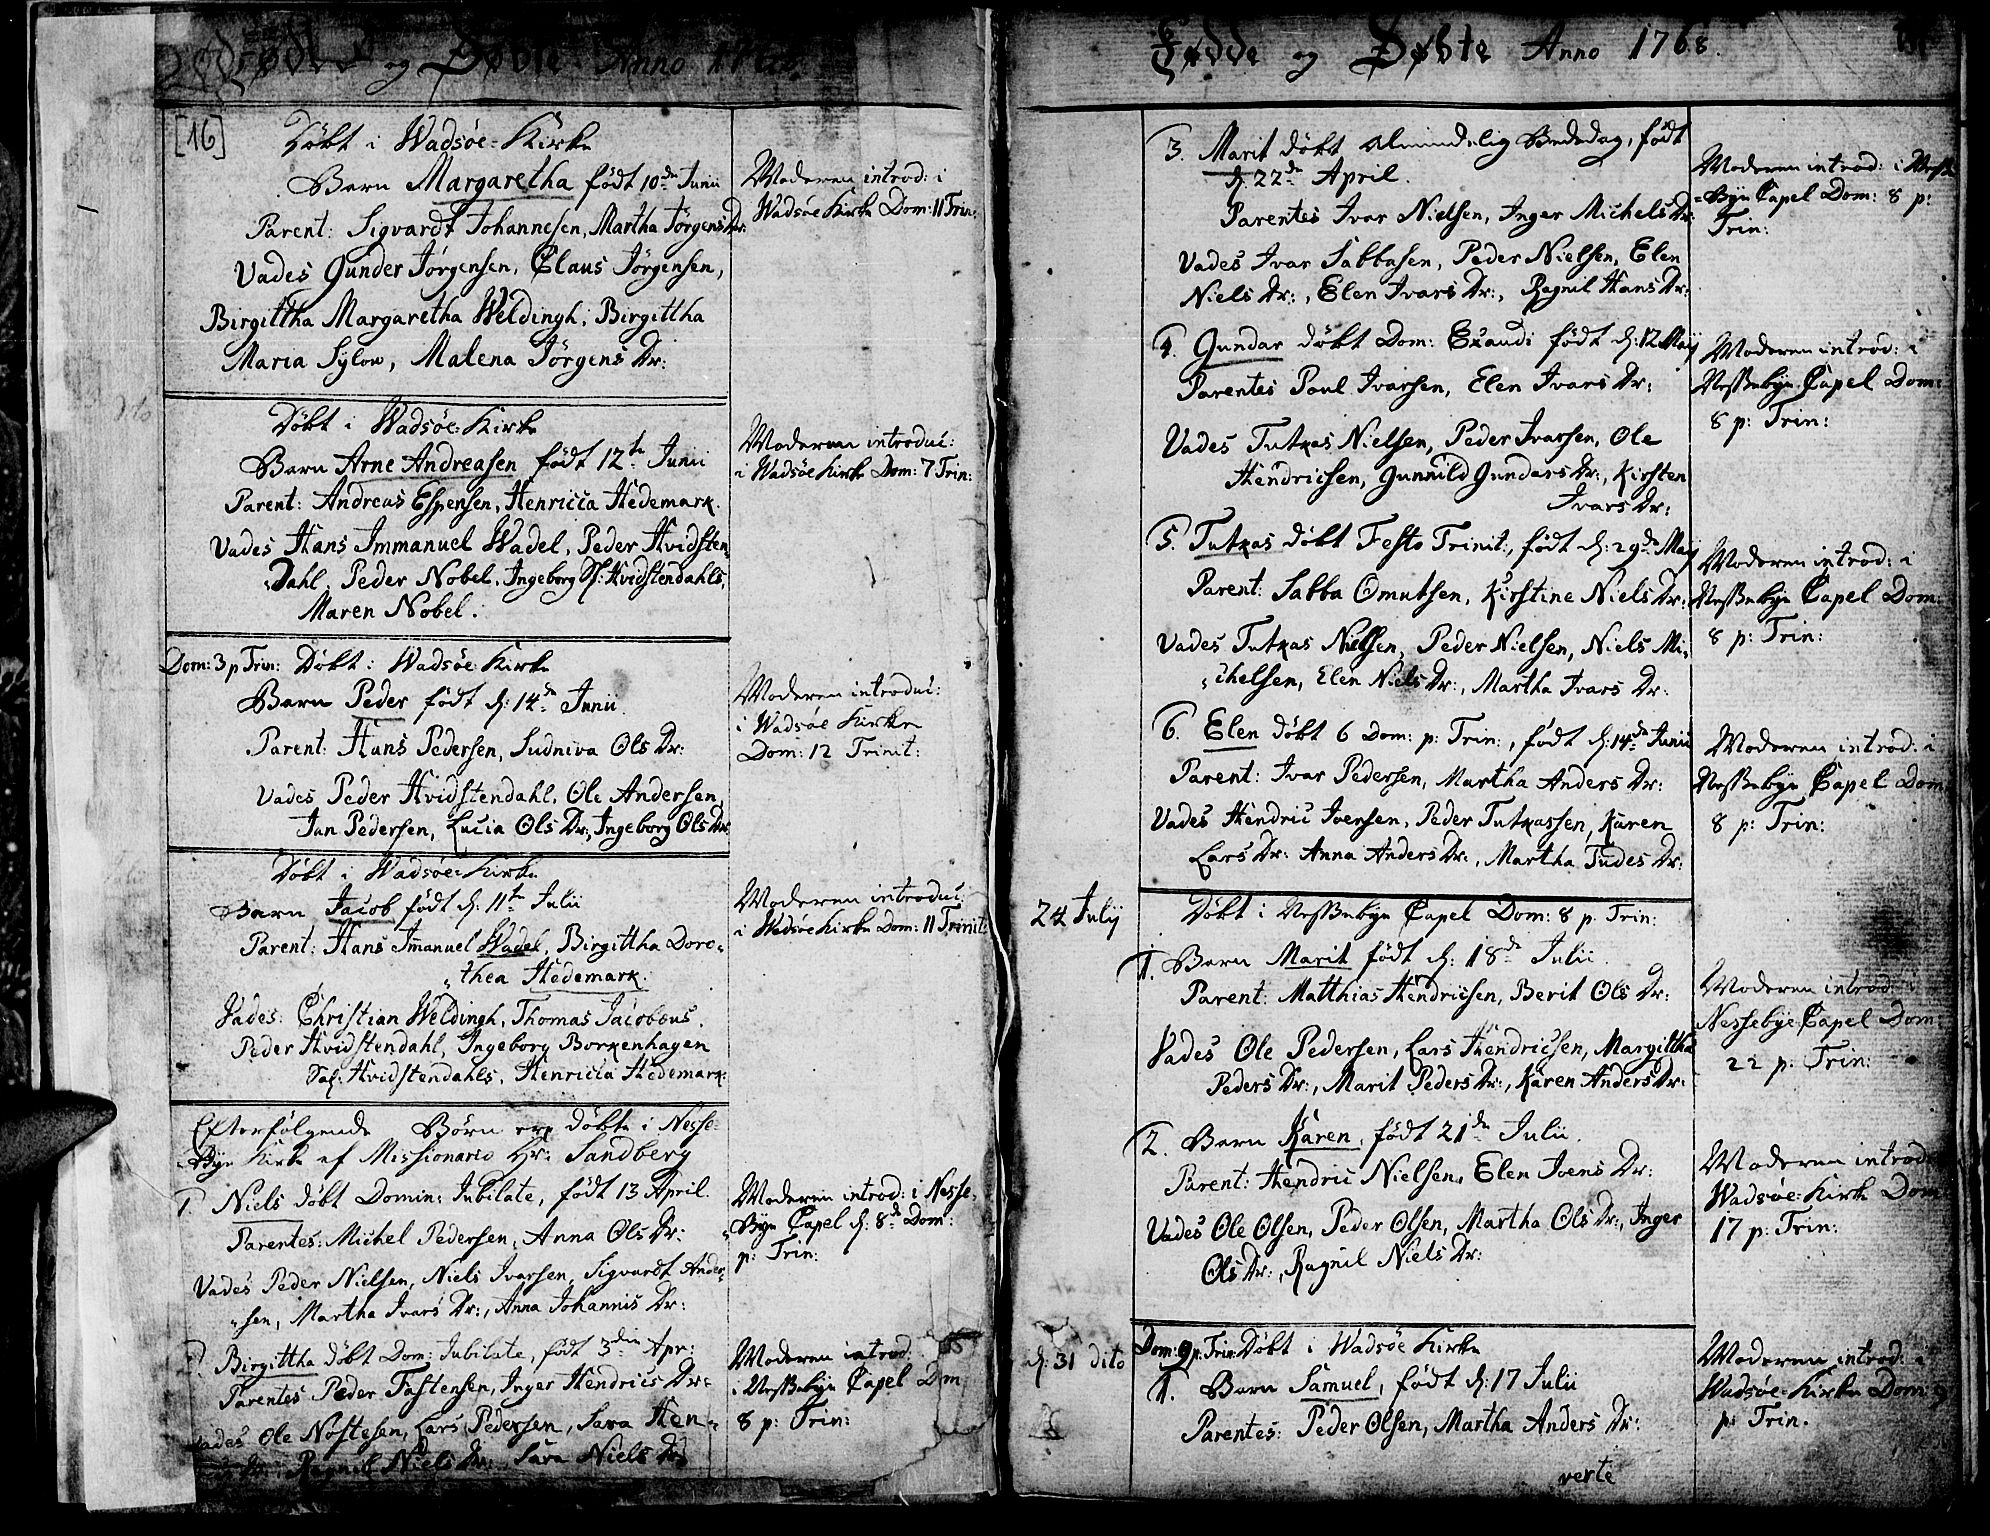 Fødde og Døbte Anno 1768
[16]
Döbt i Wadsöe-Kirke
Barn Margaretha födt 10de Junii
Parent: Sigvardt Johannesen, Martha Jörgens Dr:
Vades Gunder Jörgensen, Claus Jörgensen,
Birgittha Margaretha Weldingh, Birgittha
Maria Sylow, Malena Jörgens Dr:
Moderen introd: i
Wadsöe Kirke Dom: 11 Trin:
Döbt i Wadsöe-Kirke
Barn Arne Andreasen födt 12te Junii
Parent: Andreas Espensen, Henricia Hedemark.
Vades Hans Immanuel Wadel, Peder Hvidsten,
Dahl, Peder Nobel, Ingeborg Sl: Hvidstendahls,
Maren Nobel.
Moderen introduc:
i Wadsöe Kirke Dom: 7 Trin:
Dom: 3 p Trin: Döbt i Wadsöe Kirke
Barn Peder födt d: 14de Junii
Parent: Hans Pedersen, Sudniva Ols Dr:
Vades Peder Hvidstendahl, Ole Andersen,
Jan Pedersen, Lucia Ols Dr:, Ingeborg Ols Dr:
Moderen introduc:
i Wadsöe Kirke
Dom: 12 Trinit:
Döbt i Wadsöe Kirke
Barn Jacob födt d: 11te Julii
Parent: Hans Imanuel Wadel, Birgittha Doro-
thea Hedemark.
Vades: Christian Weldingh, Thomas Jacobæus,
Peder Hvidstendahl, Ingeborg Borkenhagen
Sal: Hvidstendahls, Henricia Hedemark.
Moderen introduc:
i Wadsöe Kirke Dom: 11 Trinit:
Efterfölgende Börn ere döbte i Nesse-
Bye Kirke af Missionario Hr: Sandberg
1. Niels döbt Domin: Jubilate, födt 13 April.
Parentes: Michel Pedersen, Anna Ols Dr:
Vades Peder Nielsen, Niels Ivarsen, Sigvardt Ander-
sen, Martha Ivars Dr:, Anna Johannis Dr:
Moderen introd: i Nesse-
Bye Capel d: 8de Dom:
p: Trin:
2. Birgittha döbt Dom: Jubilate, födt 3die Apr:
Parentes Peder Fastensen, Inger Hendrics Dr:
Vades Ole Nöstesen, Lars Pedersen, Sara Hen-
Ragnil Niels Dr:, Sara Niels Dr:
Moderen introd:
i Nessebye Capel Dom:
8 p: Trin:
Födde og Döbte Anno 1768.
3. Marit döbt Almindelig Bededag, födt
d: 22de April.
Parentes Ivar Nielsen, Inger Michels Dr:
Vades Ivar Sabbasen, Peder Nielsen, Elen
Niels Dr:, Elen Ivars Dr:, Ragnil Hans Dr:
Moderen introd: i Nesse
Bye Capel Dom: 8 p:
Trin:
4. Gundar döbt Dom: Exaudi födt d: 12 Maij
Parentes Poul Ivarsen, Elen Ivars Dr:
Vades Tutkas Nielsen, Peder Ivarsen, Ole
Hendricsen, Gunnild Gundars Dr:, Kirsten
Ivars Dr:
Moderen introd: i
Nessebye Capel Dom:
8 p: Trin:
5. Tutkas döbt Festo Trinit:, födt d: 29de Maij
Parent: Sabba Omutsen, Kirstine Niels Dr:
Vades Tutkas Nielsen, Peder Nielsen, Niels Mi-
chelsen, Elen Niels Dr:, Martha Ivars Dr:
Moderen introd: i
Nessebye Capel Dom:
8 p: Trin:
6. Elen döbt 6 Dom: p: Trin:, födt d: 14de Junii
Parent: Ivar Pedersen, Martha Anders Dr:
Vades Hendric Joensen, Peder Tutkassen, Karen
Lars Dr: Anna Anders Dr:, Martha Tudes Dr:
Moderen introd: i
Nessebye Capel Dom
8 p: Trin:
24 Julij
Döbt i Nessebye Capel Dom: 8 p: Trin:
1. Barn Marit födt d: 18de Julii.
Parent: Matthias Hendricsen, Berit Ols Dr:
Vades Ole Pedersen, Lars Hendricsen, Margittha
Peders Dr:, Marit Peders Dr:, Karen Anders Dr:
Moderen introd: i
Nessebye Capel Dom:
22 p: Trin:
2. Barn Karen, födt 21de Julii.
Parent: Hendric Nielsen, Elen Joens Dr:
Vades Ole Olsen, Peder Olsen, Martha Ols Dr:, Inger
Ols Dr:, Ragnil Niels Dr:
Moderen introd:
Wadsöe-Kirke Dom:
17 p: Trin:
d: 31 dito
Dom: 9 p: Trin: Döbt i Wadsöe Kirke
1. Barn Samuel, födt d: 17 Julii
Parentes: Peder Olsen, Martha Anders Dr:
Moderen introd: i
Wadsöe-Kirke Dom: 9
p: Trin.
verte